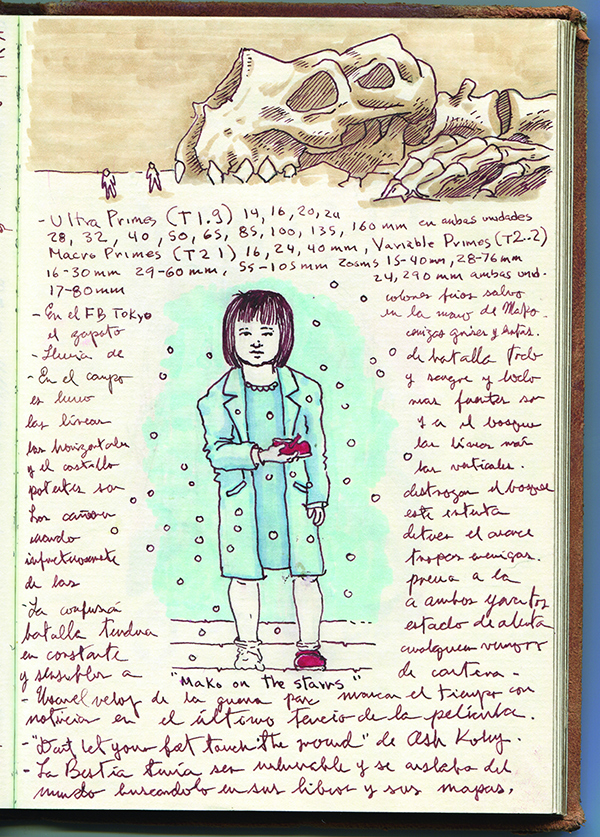 -Ultra Primes (T1.9) 14, 16, 20, 24
28, 32, 40, 50, 65, 85, 100, 135, 160 mm en ambas unidades
Macro Primes (T2 1) 16, 24, 40mm, Variable Primes (T2..2)
16-30mm 29-60mm, 55-105mm Zooms 15-40mm, 28-76mm
17-80mm 24, 290 mm ambas unid.
-En el FB Tokyo colores frios salvo
el zapato en la mano de Mako.
-Lluvia de cenizas grises y
-En el campo de batalla todo
es humo y sangre y lodo
las lineas mas fuertes son
las horizontales y en el bosque
y el castillo las lineas más
potentes son las verticales.
Los cañones destrozan el bosque
cuando este intenta
infructuosamente detener el avance
de las tropas enemigas.
-La confusión previa a la
batalla tendra a ambos
en constante estado de alerta
y sensibles a cualquier
"Mako on the stairs"
- Usar el de la guerra para marcar el tiempo con
noticias en el último tercio de la película.
-"Don't let your feet touch the ground" de Ash Koley.
-La Bestia tenía ser y se aislaba del
mundo buscandolo en sus libros y sus mapas.